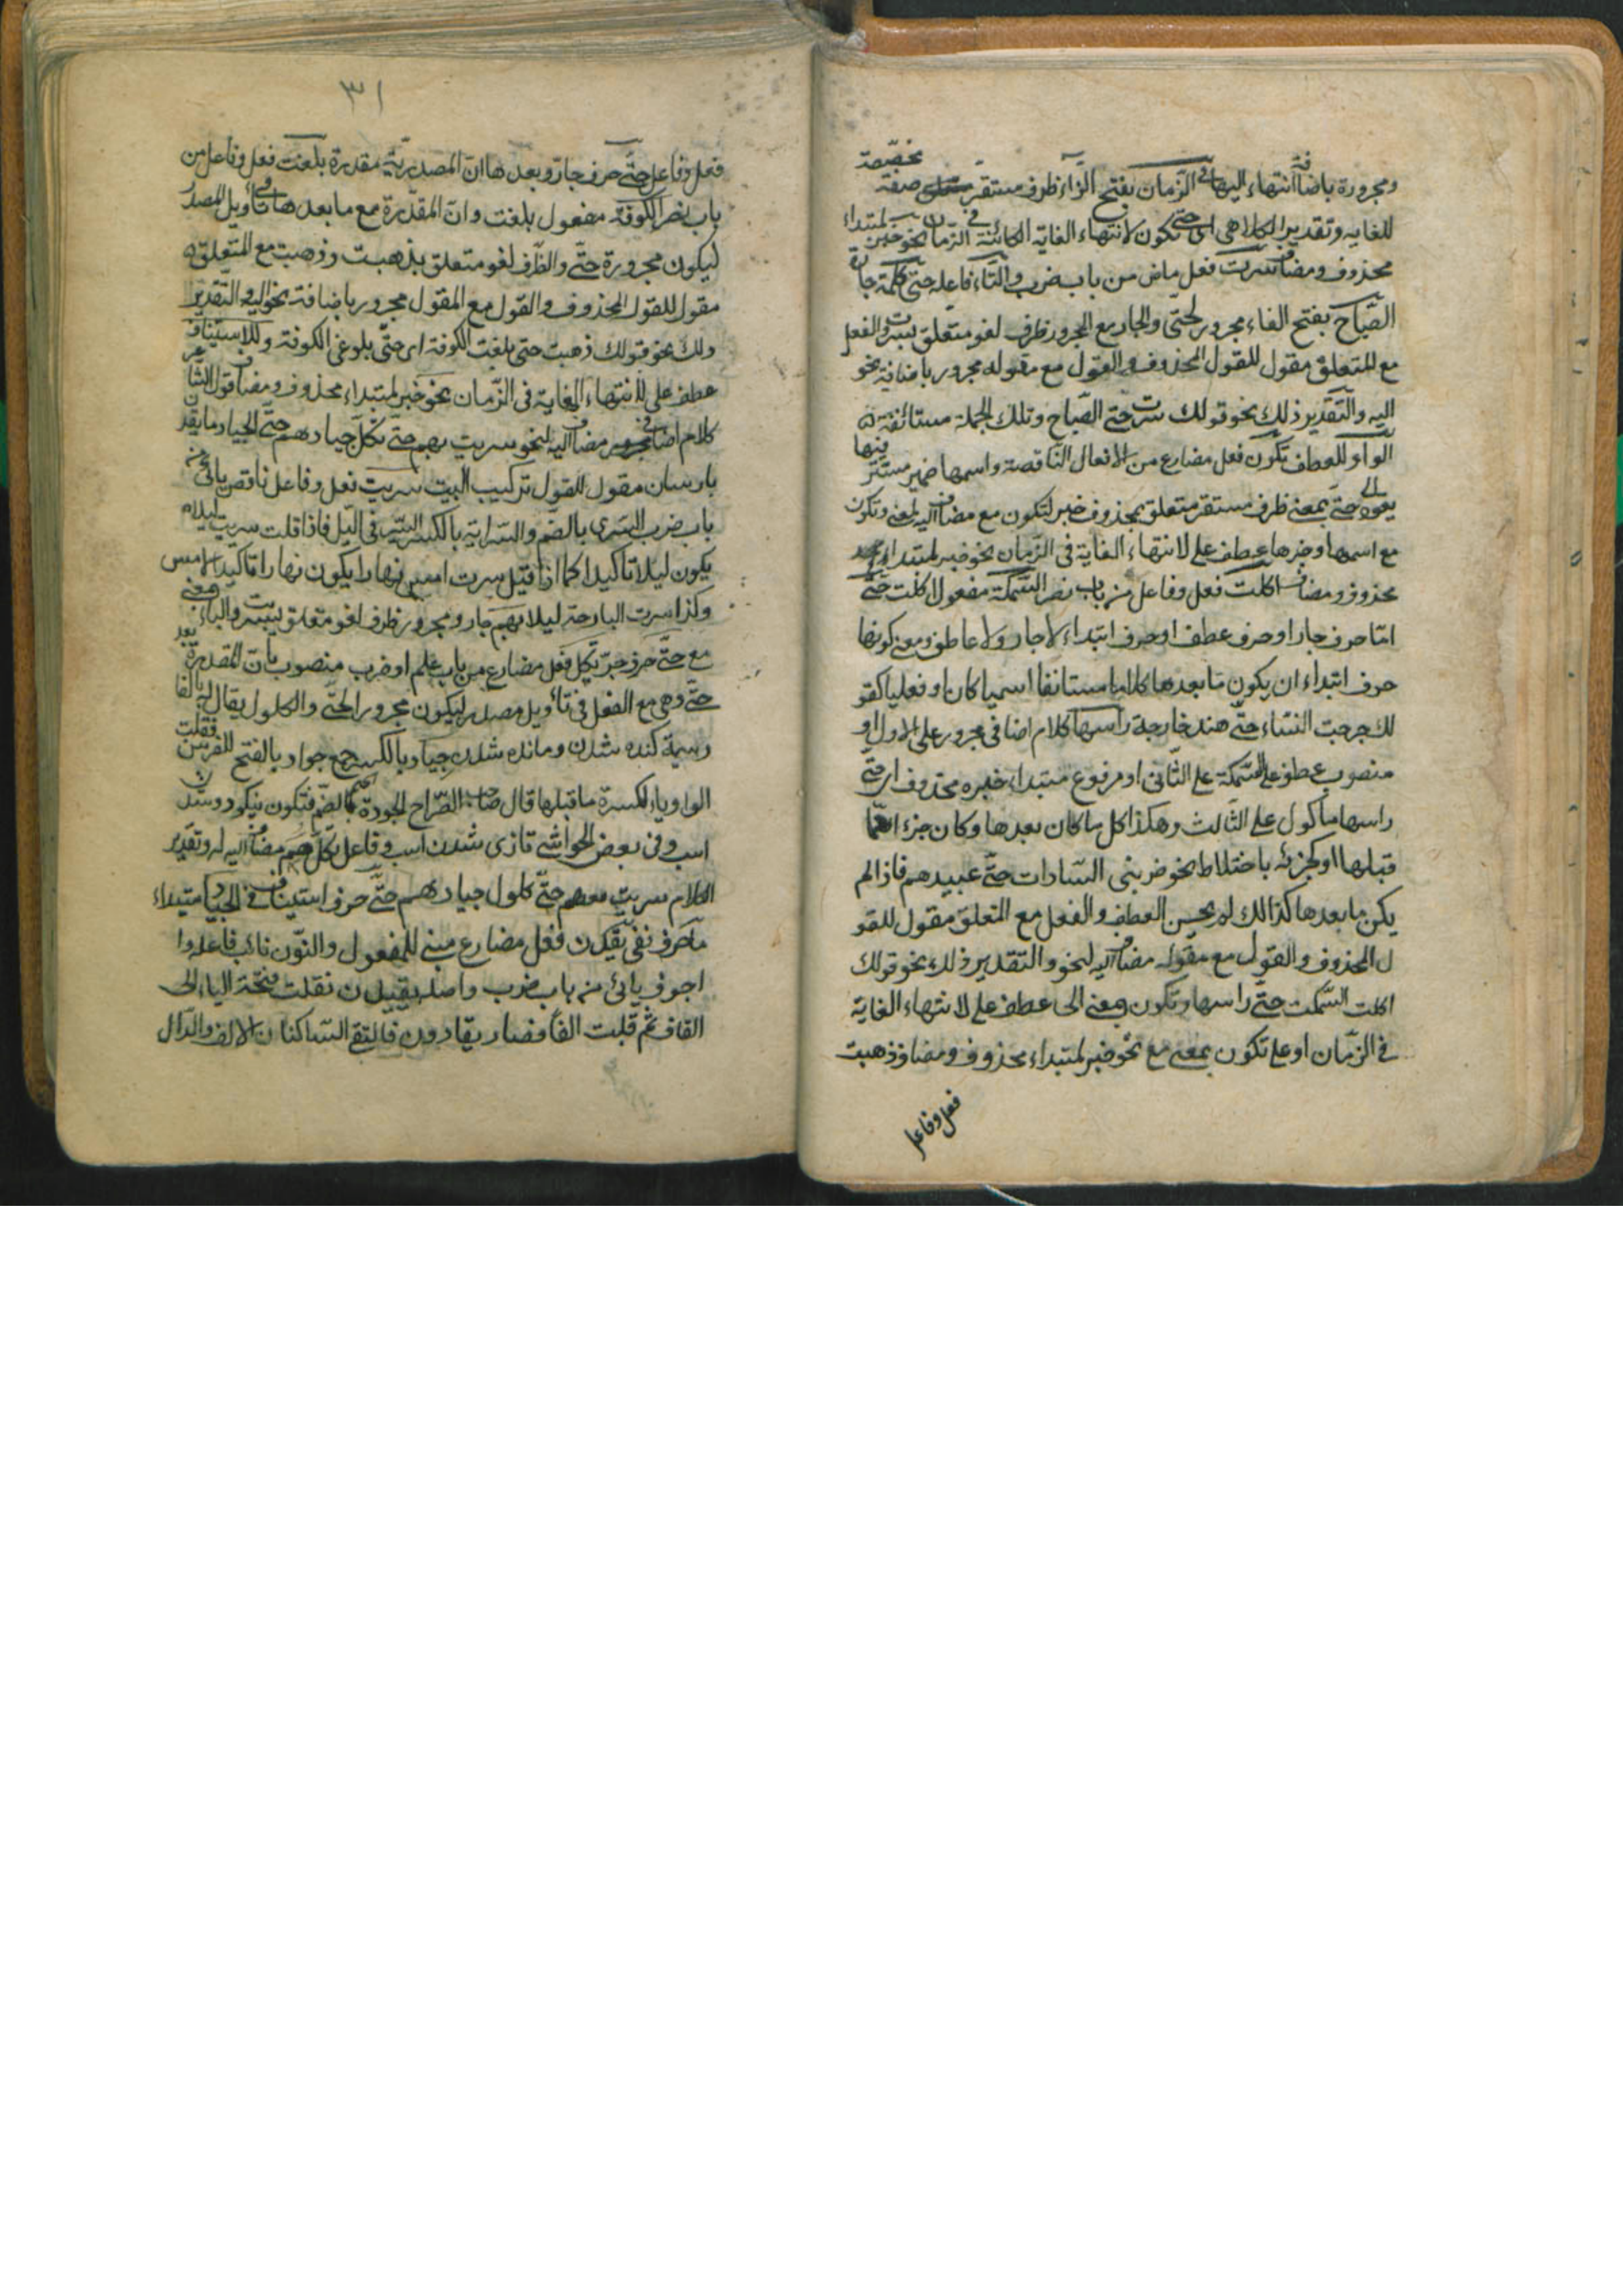 ومجرورة باضافة انتهاء اليها في الزمان بفتح الزاء ظرف مستقر صفة
للغاية وتقدير الكلام هي اى حتى تكون لانتهاء الغاية الكائنة في الزمان نحو خبر لمبتداء
محذوف ومضاف سرت فعل ماض من باب ضرب والتاء فاعله حتى كلمة جارة
الصباح بفتح الفاء مجرور لحتى والجار مع المجرور ظرف لغو متعلق بسرت والفعل
مع المتعلق مقول للقول المحذوف والقول مع مقوله مجرور باضافة نحو
اليه والتقدير ذلك نحو قولك سرت حتى الصباح وتلك الجملة مستأنفة
الواو للعطف تكون فعل مضارع من الافعال الناقصة واسمها ضمير مستتر فيها
يعود الى حتى بمعنى ظرف مستقر متعلق بمحذوف خبر لتكون مع مضاف اليه لمعنى وتكون
مع اسمها وخبرها عطف على لانتهاء الغاية في الزمان نحو خبر لمبتداء
محذوف ومضاف اكلت فعل وفاعل من باب نصر السمكة مفعول لاكلت حتى
امّا حرف جار او حرف عطف او حرف ابتداء لا جار ولا عاطف ومعنى كونها
حرف ابتداء ان يكون ما بعدها كلاما مستانفا اسميا كان او فعليا كقو
لك خرجت النساء حتى هند خارجة راسها كلام اضافى مجرور على الاول او
منصوب عطف على السمكة على الثانى او مرفوع مبتداء خبره محذوف اى حتى
راسها ماكول على الثالث وهكذا كل ما كان بعدها وكان جزء امما
قبلها او كجزئه باختلاط نحو ضربنى السادات حتى عبيدهم فاذا لم
يكن ما بعدها كذالك لم يحسن العطف والفعل مع المتعلق مقول للقو
ل المحذوف والقول مع مقوله مضاف اليه لنحو والتقدير ذلك نحو قولك
اكلت السمكت حتى راسها وتكون بمعنى الى عطف على لانتهاء الغاية
في الزمان او على تكون بمعنى مع نحو خبر لمبتداء محذوف ومضاف ذهبت
فعل وفاعل
٣١
فعل وفاعل حتى حرف جار وبعدها ان المصدرية مقدرة بلغت فعل وفاعل من
باب نصر الكوفة مفعول بلغت وان المقدرة مع ما بعدها في تأويل المصدر
ليكون مجرورة حتى والظرف لغو متعلق بذهبت وذهبت مع المتعلق
مقول للقول المحذوف والقول مع المقول مجرور باضافة نحو اليه والتقدير
ذلك نحو قولك ذهبت حتى بلغت الكوفة اى حتى بلوغى الكوفة وللاستيناف
عطف على لانتهاء الغاية في الزمان نحو خبر لمبتداء محذوف ومضاف قول الشاعر
كلام اضافى مضاف اليه لنحو سريت بهم حتى تكل جيادهم حتى الجياد ما يقدن
بارسان مقول للقول تركيب البيت سريت فعل وفاعل ناقص يائى من
باب ضرب السرى بالضم والسراية بالكسر السير في الليل فاذا قلت سريت ليلا
يكون ليلا تاكيدا كما اذا قيل سرت امس نهارا يكون نهارا تاكيد الامس
وكذا سرت البارحة ليلا بهم جار ومجرور ظرف لغو متعلق بسريت والباء بمعنى
مع حتى حرف جر تكل فعل مضارع من باب علم او ضرب منصوب بان المقدرة بعد
حتى وهى مع الفعل في تأويل مصدر ليكون مجرورا لحتى والكلول يقال له بالفا
رسية كنده شدن ومانده شدن جياد بالكسر جمع جواد بالفتح للفرس فقلبت
الواو ياء لكسرة ما قبلها قال صاحب الصراح الجودة بالضم فتكون نيكو ردوشدن
اسب وفى بعض الحواشى تازى شدن اسب وفاعل تكل هم مضاف اليه له وتقدير
الكلام سريت معهم حتى كلول جيادهم حتى حرف استيناف الجياد مبتداء
ما حرف نفى يقدن فعل مضارع مبنى للمفعول والنون نائب فاعله وا
اجوف يائى من باب ضرب واصله يقيدن نقلت فتحة الياء الى
القاف ثم قلبت الفا فصار يقادن فالتقى الساكنان الالف والدال